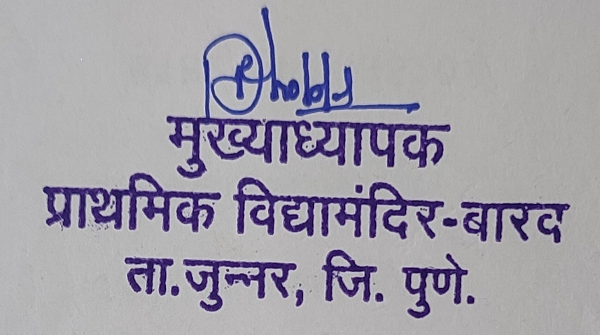 मुख्याध्यापक
प्राथमिक विद्यामंदिर-बारव
ता.जुन्नर, जि. पुणे.